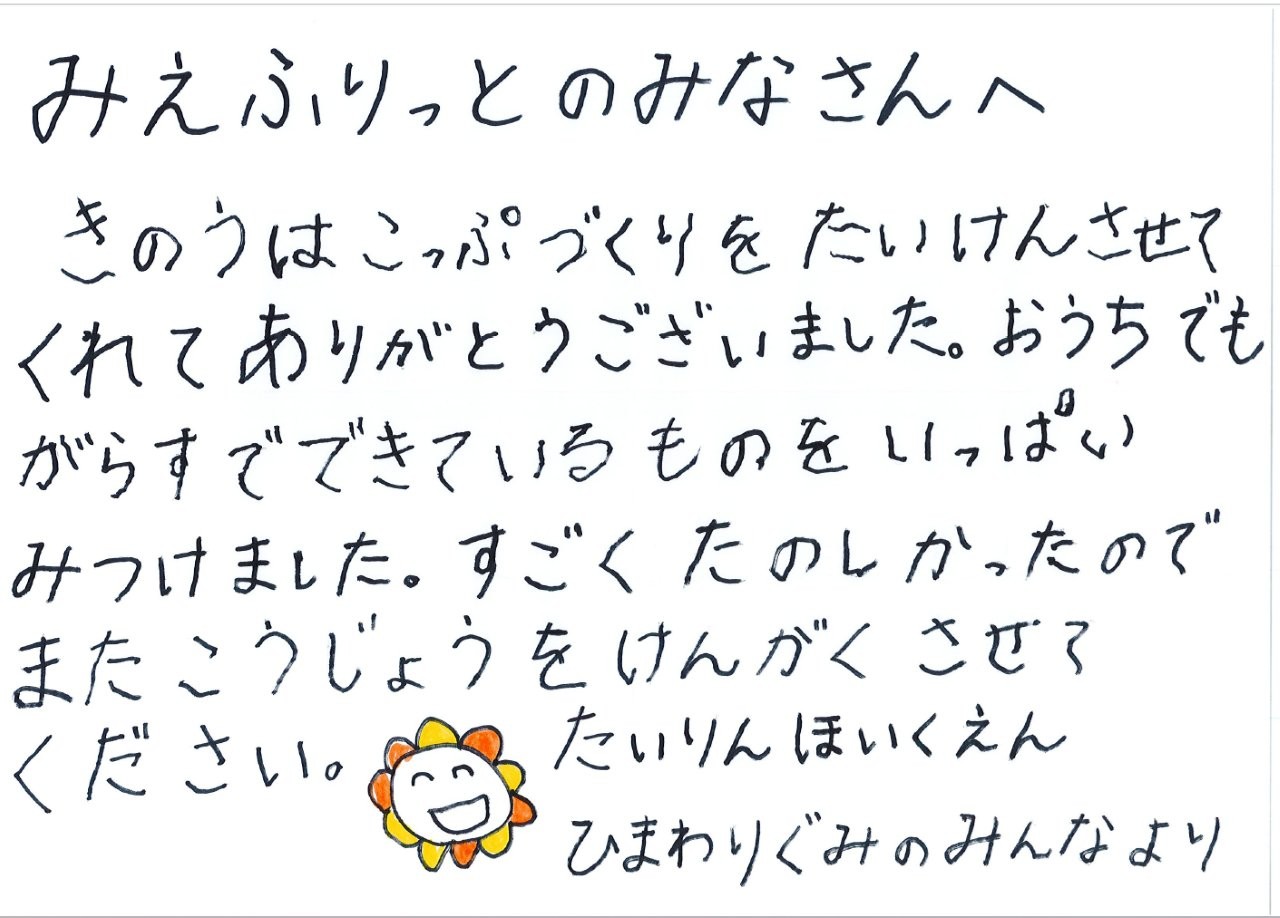 みえふりっとのみなさんへ
きのうはこっぷづくりをたいけんさせて
くれてありがとうございました。おうちでも
がらすでできているものをいっぱい
みつけました。すごくたのしかったので
またこうじょうをけんがくさせて
ください。
たいりんほいくえん
ひまわりぐみのみんなより